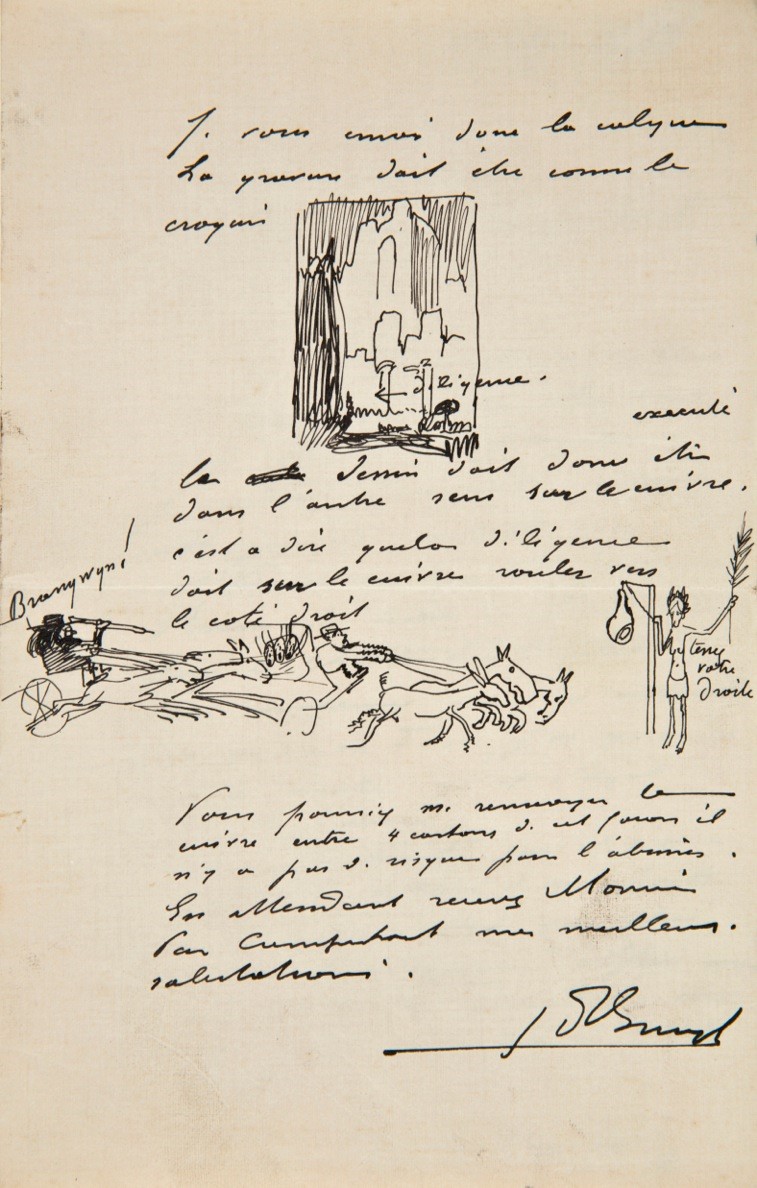 Je vous envoi donc le calque
La gravure doit être comme le
croquis
diligence.
executé
le dessin doit donc être
dans l'autre sens sur le cuivre.
c'est a dire que la diligence
doit sur le cuivre rouler vers
le coté droit
Brangwyn!
tenez
votre
droite
Vous pourriez me renvoyer le
cuivre entre 4 cartons de cet façon il
n'y a pas de risque pour l'abimer.
En attendant recevez Monsieur
Van mes meilleurs.
salutations.